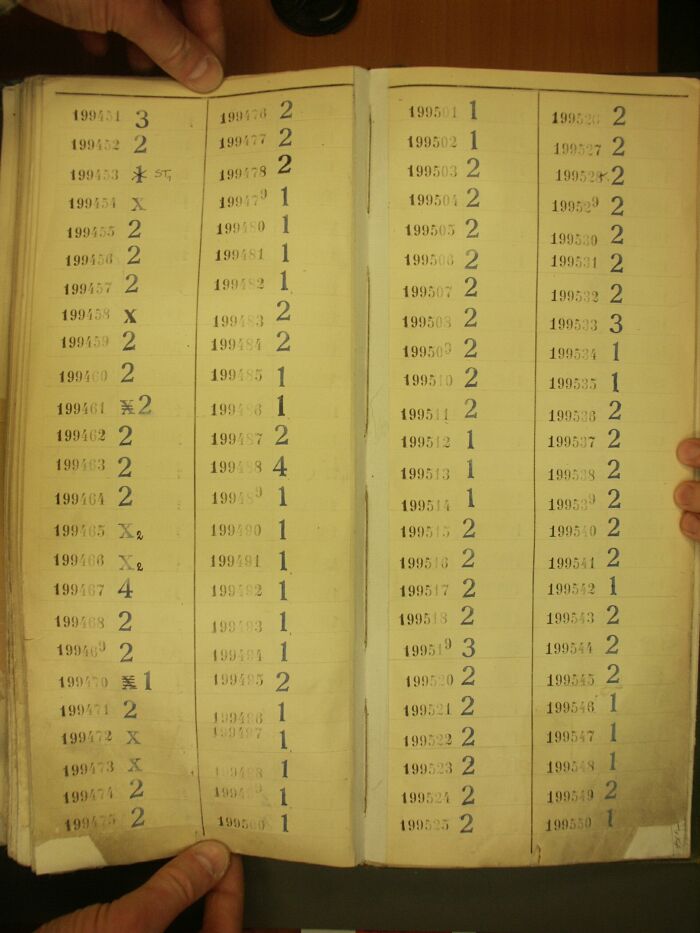 199451 3
199452 2
199453 1 ST,
199454 X
199455 2
199456 2
199457 2
199458 X
199459 2
199460 2
199461 X 2
199462 2
199463 2
199464 2
199465 X 2
199466 X 2
199467 4
199468 2
199469 2
199470 X 1
199471 2
199472 X
199473 X
199474 2
199475 2
199476 2
199477 2
199478 2
199479 1
199480 1
199481 1
199482 1
199483 2
199484 2
199485 1
199486 1
199487 2
199488 4
199489 1
199490 1
199491 1
199492 1
199493 1
199494 1
199495 2
199496 1
199497 1
199498 1
199499 1
199500 1
199501 1
199502 1
199503 2
199504 2
199505 2
199506 2
199507 2
199508 2
199509 2
199510 2
199511 2
199512 1
199513 1
199514 1
199515 2
199516 2
199517 2
199518 2
199519 3
199520 2
199521 2
199522 2
199523 2
199524 2
199525 2
199526 2
199527 2
199528 2
199529 2
199530 2
199531 2
199532 2
199533 3
199534 1
199535 1
199536 2
199537 2
199538 2
199539 2
199540 2
199541 2
199542 1
199543 2
199544 2
199545 2
199546 1
199547 1
199548 1
199549 2
199550 1